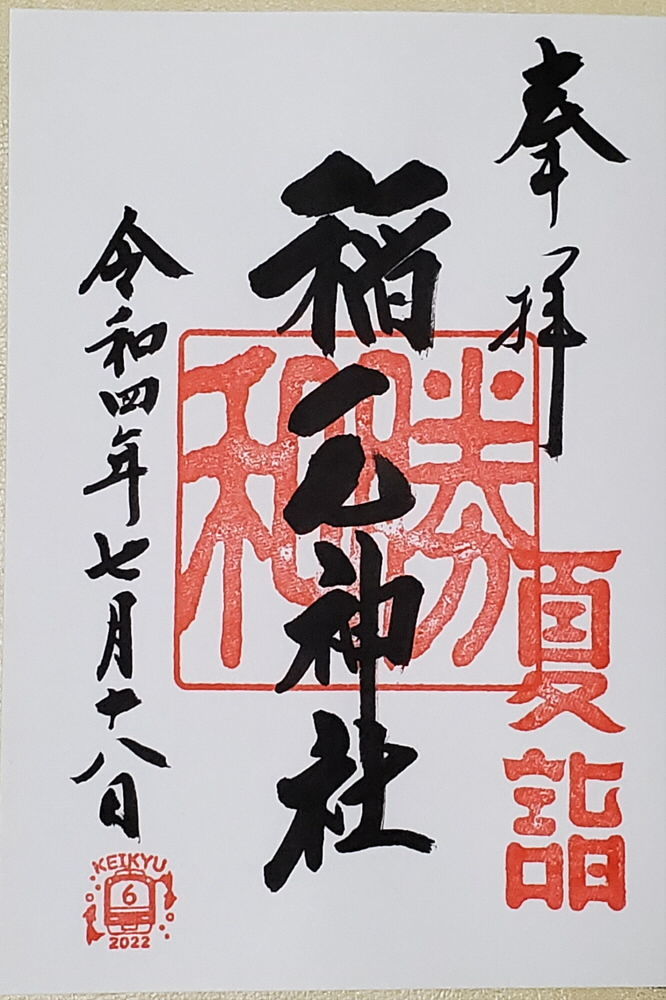 奉拝
夏詣
勝和
稲毛神社
令和四年七月十八日
KEIKYU
6
2022